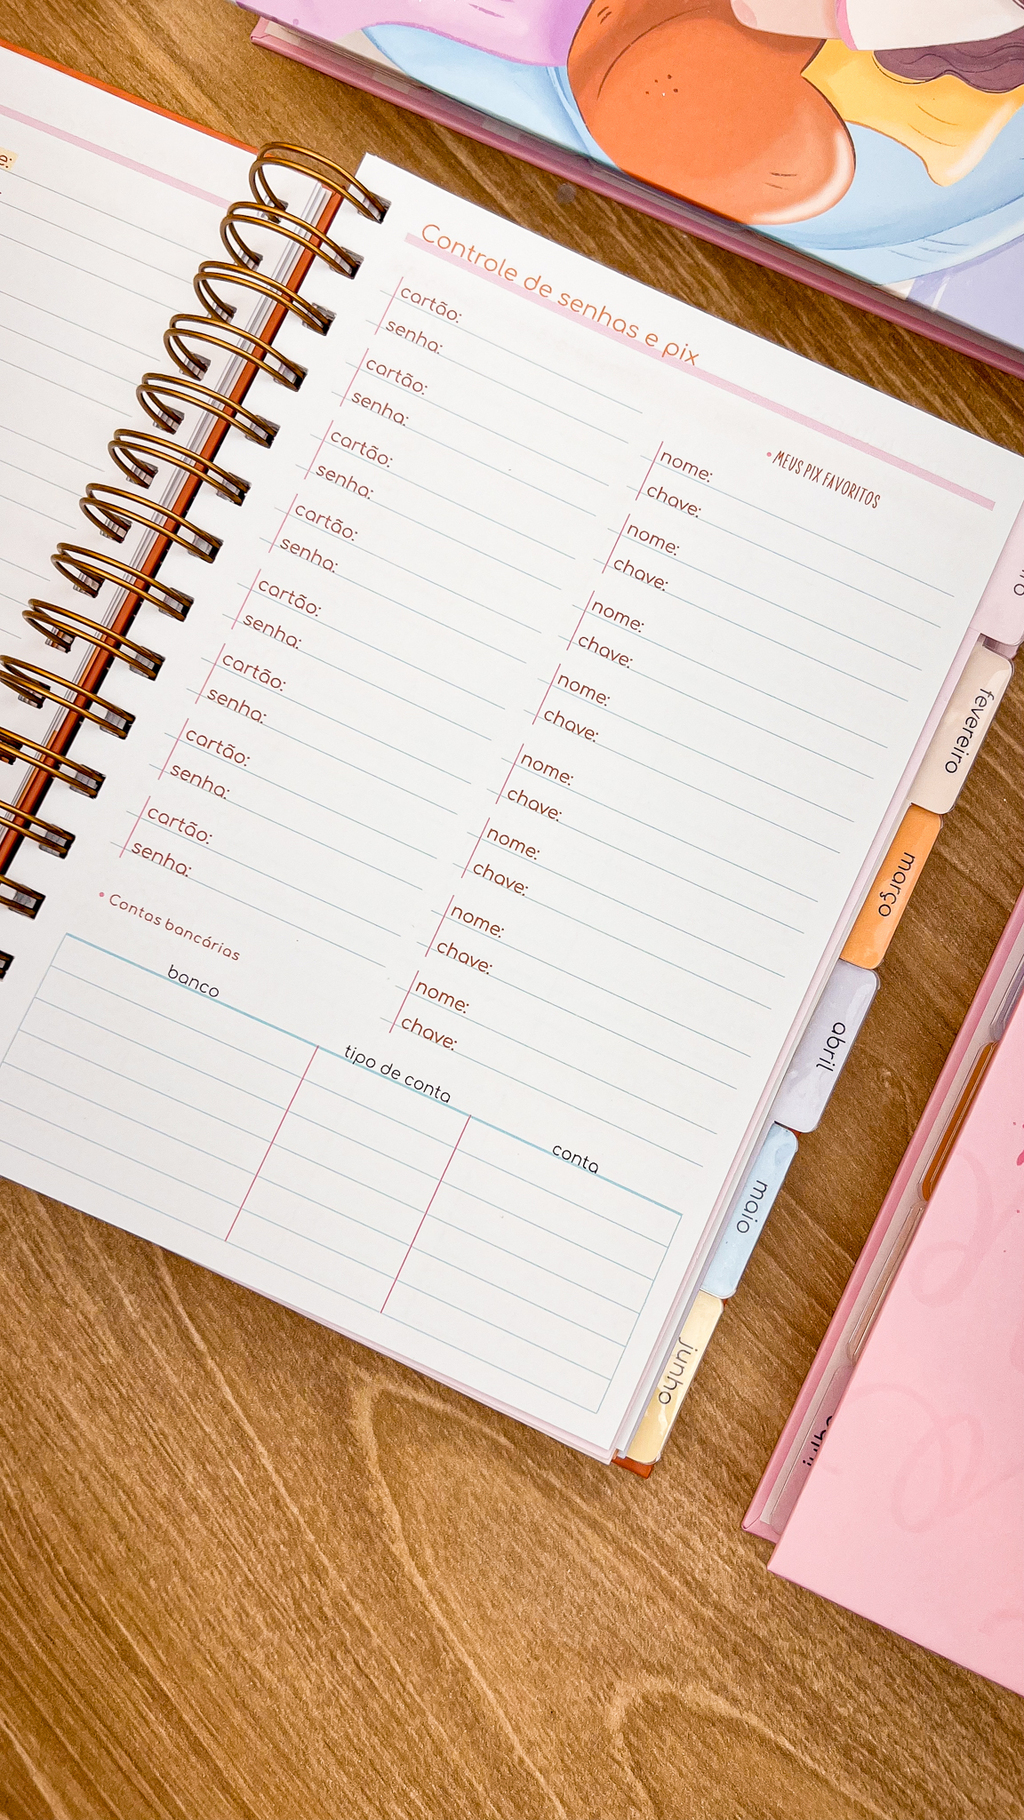 e:
Controle de senhas e pix
cartão:
senha:
cartão:
senha:
cartão:
senha:
cartão:
senha:
cartão:
senha:
cartão:
senha:
cartão:
senha:
cartão:
senha:
• MEUS PIX FAVORITOS
nome:
chave:
nome:
chave:
nome:
chave:
nome:
chave:
nome:
chave:
nome:
chave:
nome:
chave:
nome:
chave:
• Contas bancárias
banco
tipo de conta
conta
fevereiro
março
abril
maio
junho